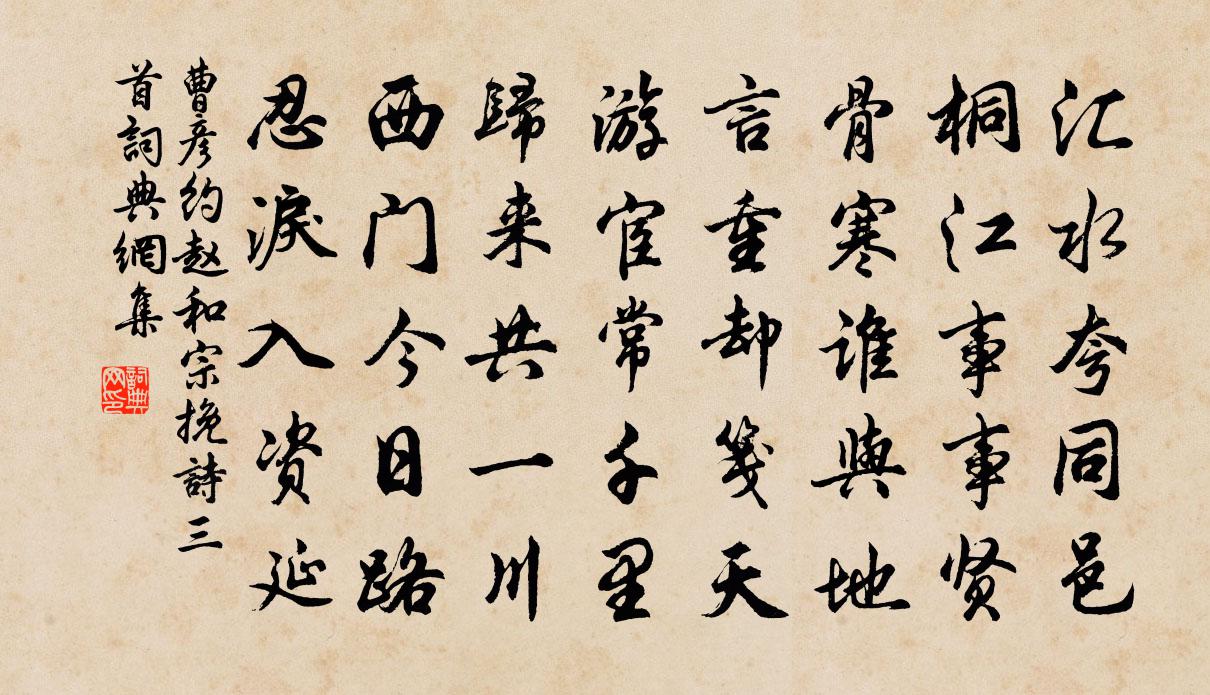 汇水夸同邑
桐江事事贤
骨寒谁與地
言重却笺天
游宦常千里
歸来共一川
西门今日路
忍淚入资延
曹彦约赵和宗挽詩三
首詞典網集
詞典
网印